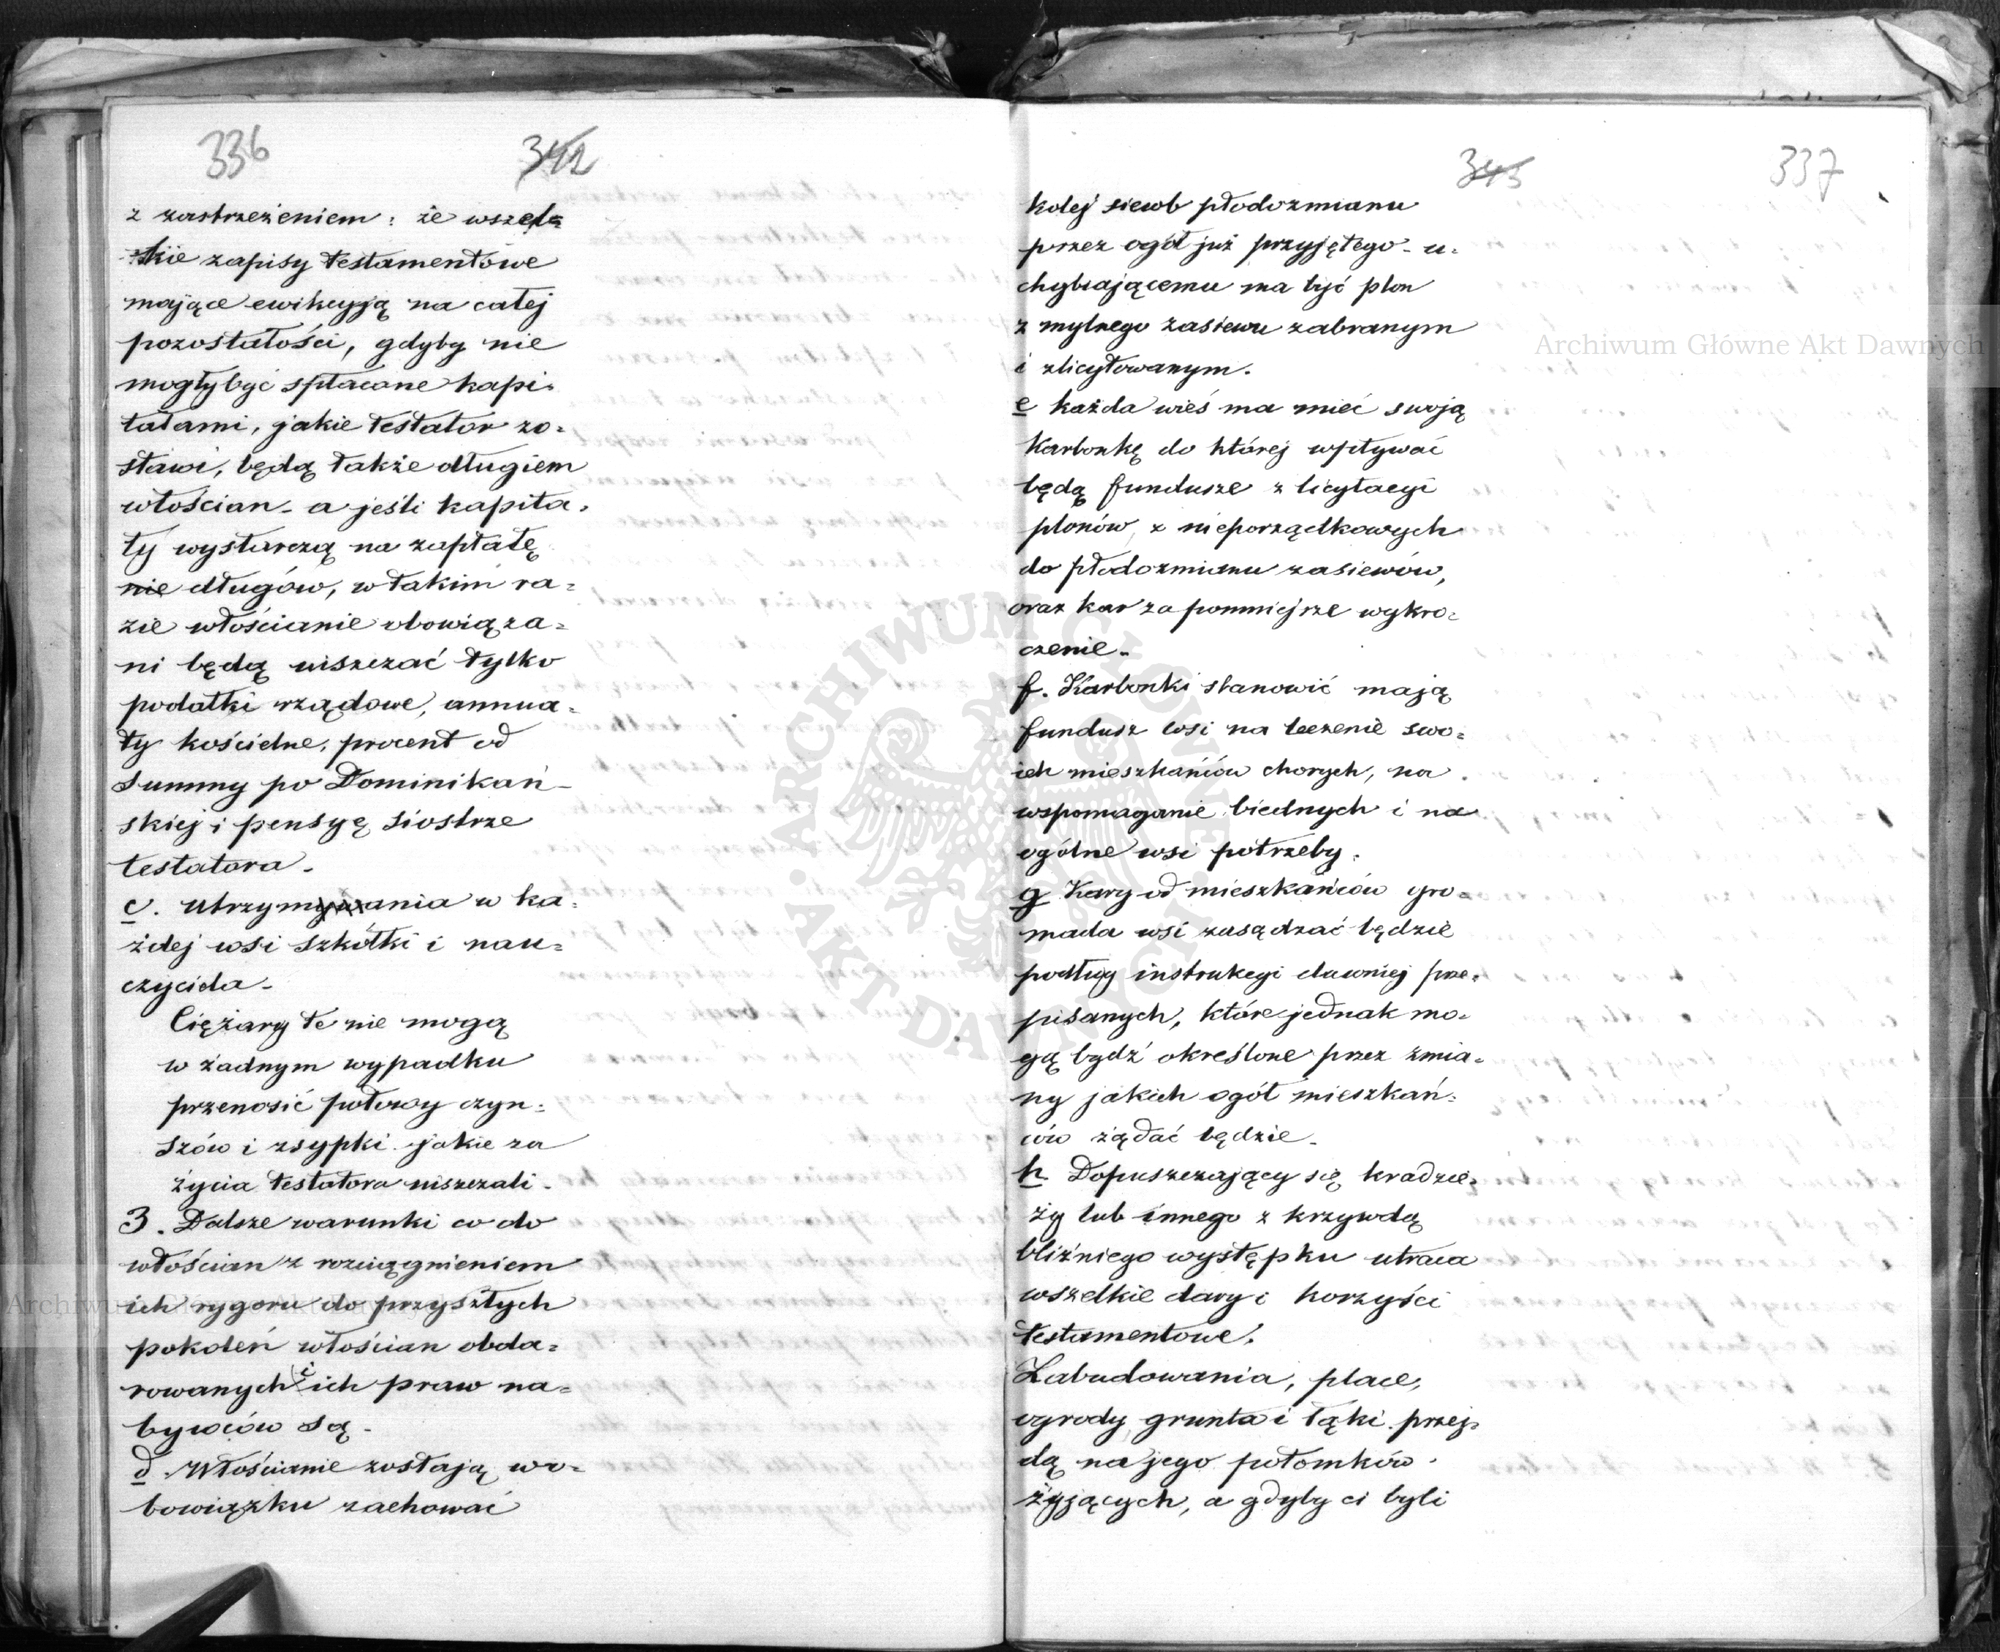 336
342
z zastrzeżeniem: że wszel=
kie zapisy testamentowe
mające ewikcyją na całej
pozostałości, gdyby nie
mogły być spłacone kapi=
tałami, jakie testator zo=
stawi, będą także długiem
włościan - a jeśli kapita=
ły wystarczą na zapłatę
nie długów, w takim ra=
zie włościanie obowiąza=
ni będą uiszczać tylko
podatki rządowe, annua=
ty kościelne, procent od
summy po Dominikań=
skiej i pensyę siostrze
testatora.
c. utrzymywania w ka=
żdej wsi szkółki i nau=
czyciela.
Ciężary te nie mogą
w żadnym wypadku
przenosić połowy czyn=
szów i zsypki jakie za
życia testatora uiszczali.
3. Dalsze warunki co do
włościan z rozciągnieniem
ich rygoru do przyszłych
pokoleń włościan obda=
rowanych i ich praw na=
bywców są.
d. Włościanie zostają w o=
bowiązku zachować
343
337
kolej siewb płodozmianu
przez ogół już przyjętego - u=
chybiającemu ma być plon
z mylnego zasiewu zabranym
i zlicytowanym.
e każda wieś ma mieć swoją
Karbonkę do której wpływać
będą fundusze z licytacyi
plonów z nieporządkowych
do płodozmianu zasiewów,
oraz kar za pomniejsze wykro=
czenie.
f. Karbonki stanowić mają
fundusz wsi na leczenie swo=
ich mieszkańców chorych, na
wspomaganie biednych i na
ogólne wsi potrzeby.
g Kary od mieszkańców gro=
mada wsi zasądzać będzie
podług instrukcyi dawniej prze=
pisanych, które jednak mo=
gą bydź określone przez zmia=
ny jakich ogół mieszkań=
ców żądać będzie.
h. Dopuszczający się kradzie=
ży lub innego z krzywdą
bliźniego występku utraca
wszelkie dary i korzyści
testamentowe.
Zabudowania, place,
ogrody grunta i łąki przej=
dą na jego potomków
żyjących, a gdyby ci byli
Archiwum Główne Akt Dawnych
ARCHIWUM GŁÓWNE AKT DAWNYCH